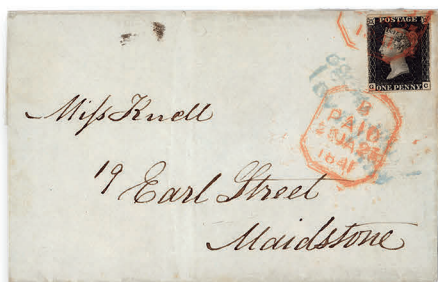 POSTAGE
ONE PENNY
PAID
1841
Miss Knell
19 Earl Street
Maidstone